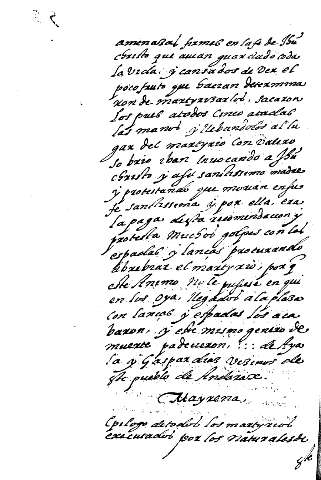 amenazas firmes en la fe de Jhu
christo que auian guardado toda
la vida, y cansados de ver el
poco fruto que hacian determina
ron de martyrizarlos, sacaron
los pues a todos cinco atadas
las manos y llebandolos al lu
gar del martyrio con valero
so brio iban invocando a Jhu
christo y a su santissima madre
y protestando que morian en su
fe santissima y por ella, era
la paga desta recomendacion y
protesta muchos golpes con las
espadas y lanças procurando
abrebiar el martyrio, porq
este animo no le pusiese en qui
en los oya, llegados a la plaza
con lanças y espadas los aca
baron, y este mismo genero de
muerte padecieron de Aya
la y Gaspar dias vezinos de
ste pueblo de Andarax
Mayrena,
Epilogo de todos los martyrios
executados por los naturales de